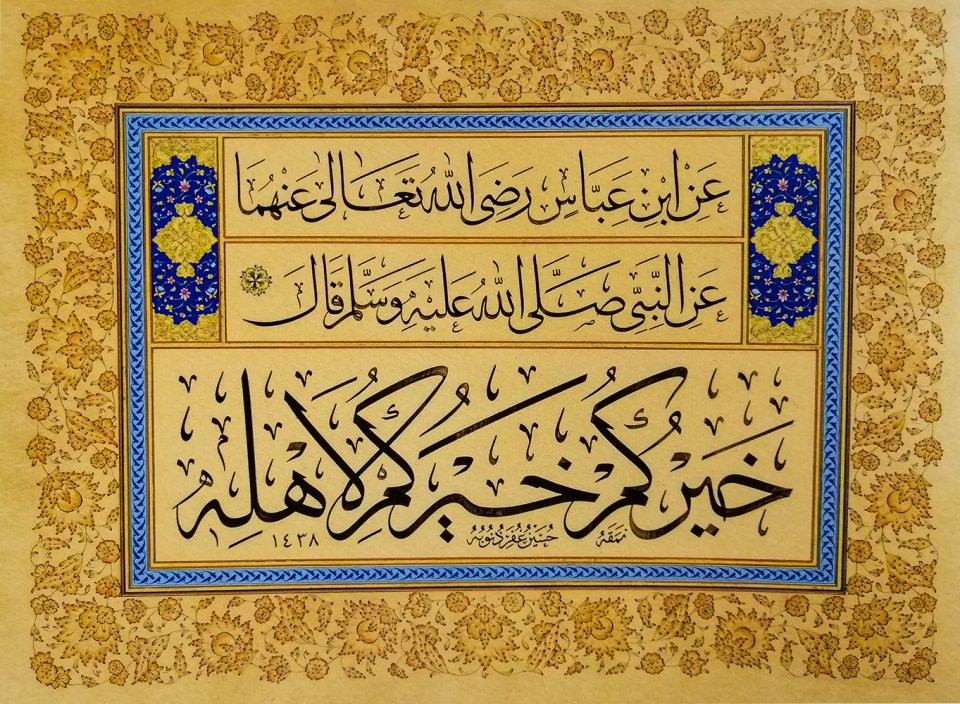 عَنِ ابْنِ عَبَّاسٍ رَضِىَ اللّٰهُ تَعَالٰى عَنْهُمَا
عَنِ النَّبِىِّ صَلَّى اللّٰهُ عَلَيْهِ وَسَلَّمَ قَالَ
خَيْرُكُمْ خَيْرُكُمْ لِاَهْلِهِ
نمقه حسين غفر ذنوبه ١٤٣٨